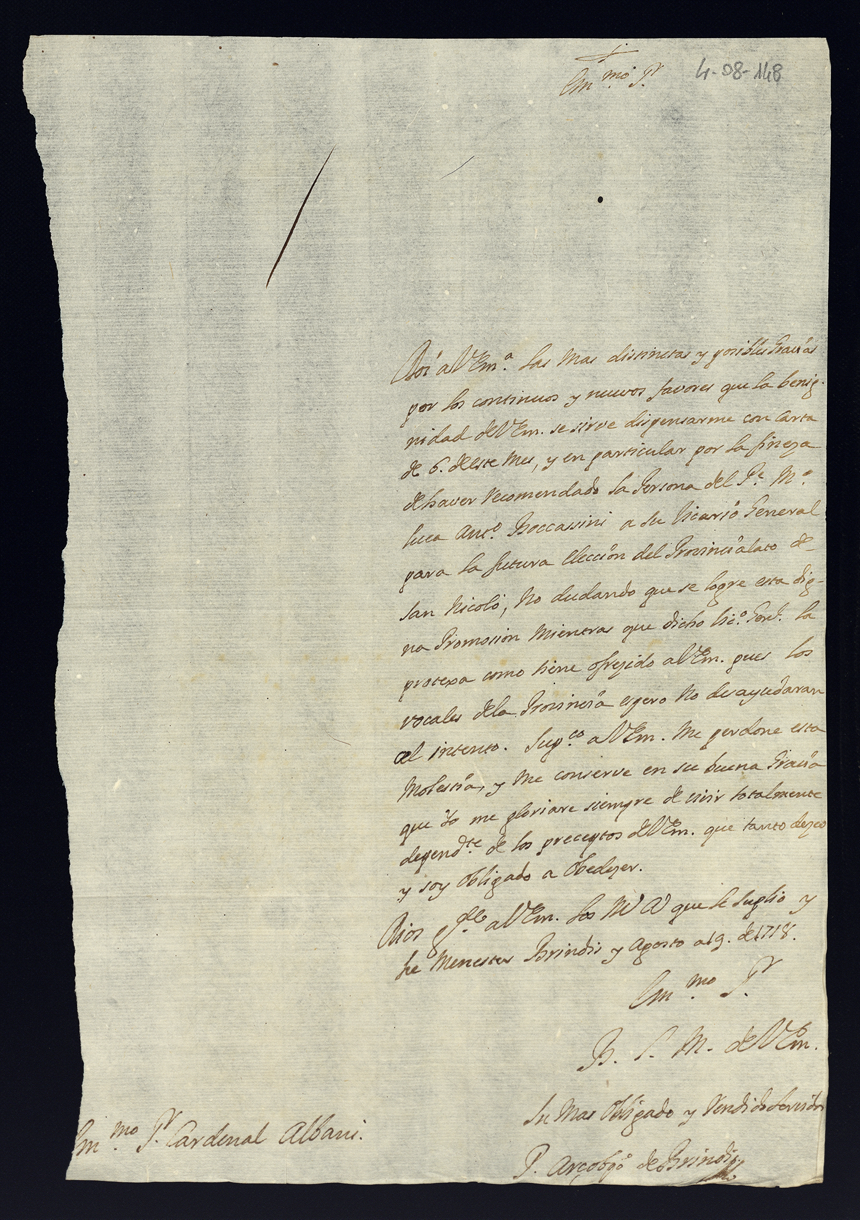 4-08-148
Em.mo Sr
Doi a V Em.a las mas distinctas y posibles Gracias
por los continuos y nuevos favores que la benig-
nidad de V Em. se sirve dispensarme con carta
de 6. de este Mes, y en particular por la fineza
de haver recomendado la Persona del Pe. Mo.
Luca Anto. Boccassini a su Vicario General
para la futura Eleccion del Provincialato de
San Nicolò, No dudando que se logre esta dig-
na Promosion Mientras que dicho Vico. Genl. la
protexa como tiene ofrezido a V Em. pues los
vocales de la Provincia espero No desayudaran
al intento. Supco a V Em. Me perdone esta
Molestia, y Me conserve en su buena Gracia
que Yo me gloriare siempre de vivir totalmente
dependte de los preceptos de V Em. que tanto dezeo
y soy Obligado a Obedezer.
Dios gde a V Em. los Ms As que le suplio y
he Menester Brindis y Agosto a 19. de 1718.
Em.mo Sr
B. L. M. de V Em.
Su Mas Obligado y Rendido Servidor
P. Arçobpo de Brindis
Em.mo Sr Cardenal Albani.